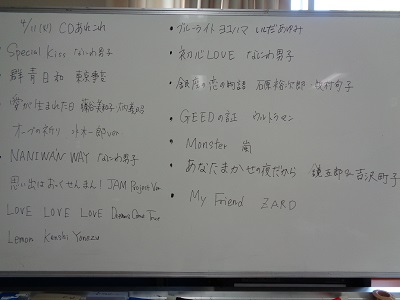 4/11(火) CDあれこれ
Special Kiss なにわ男子
群青日和 東京事変
愛が生まれた日 藤谷美和子
オーブの祈り 水木一郎ver
• NANIWA'N WAY なにわ男子
思い出はおっくせんまん! JAM Project Ver.
LOVE LOVE LOVE Dreams Come True
Lemon Kenshi Yonezu
• ブルーライトヨコハマ いしだあゆみ
• 初心LOVE なにわ男子
• 銀座の恋の物語 石原裕次郎 牧村旬子
• GEEDの証 ウルトラマン
• Monster 嵐
• あなたまかせの夜だから 鏡五郎&吉沢町子
• My Friend ZARD